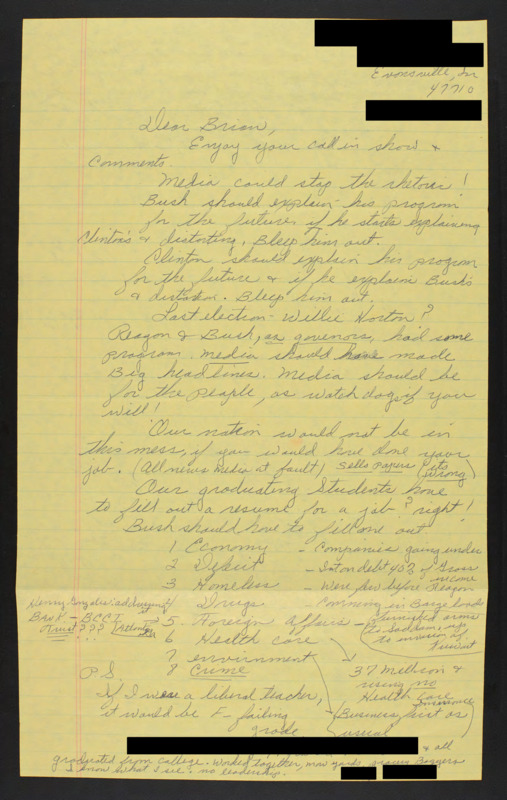 Evansville, In
47710
Dear Brian,
Enjoy your call in show &
Comments.
Media could stop the rhetoric!
Bush should explain his program
for the future, if he starts explaining
Clinton's & distorting, Bleep him out.
Clinton should explain his program
for the future & if he explains Bush's
& distortion. Bleep him out.
Last election - Willie Horton?
Reagon & Bush, as govenors, had some
program. Media should have made
Big headlines. Media should be
for the people, as watch dogs if you
will!
Our nation would not be in
this mess, if you would have done your
job. (All news media at fault) Sells papers (its
wrong)
Our graduating Students have
to fill out a resume for a job? right!
Bush should have to fill one out
1 Economy - Companies going under
2 Deficit - Int on debt 40% of Gross
income
3 Homeless - Were few before Reagon
4 Drugs - Comming in Barge loads
Henry Gonzales: ad
BANK - BCCI
Trust ???
5. Foreign Affairs - arms
to Saddam up
to invasion of
Kuwait
6 Health care
7 envirnment
8 Crime
37 Million &
rising no
Health Care
Insurance
Business first as
usual
P.S.
If I were a liberal teacher,
it would be F- failing
grade
& all
graduated from college. Worked together, mow yards, grocery Baggers
I know what I see: no leadership.